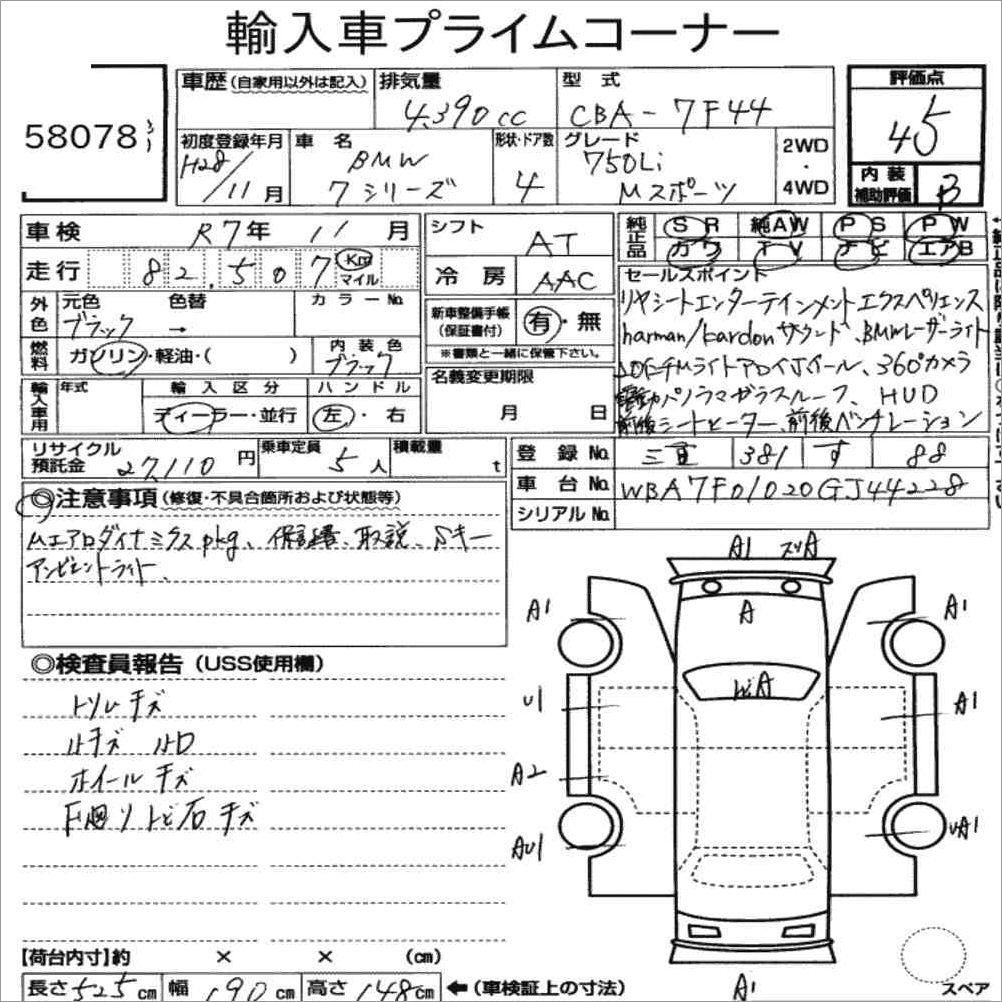 輸入車プライムコーナー
58078
車歴(自家用以外は記入) 排気量 型式 評価点
4,390cc CBA-7F44 45
初度登録年月 車名 形状・ドア数 グレード 2WD・4WD 内装補助評価
H28/11月 BMW 7シリーズ 4 750Li Mスポーツ B
車検 R7年 11月
シフト AT
純正品 SR 純AW PS PW
カワ TV ナビ エアB
走行 82,507 Km マイル
冷房 AAC
セールスポイント
リヤシートエンターテインメントエクスペリエンス
harman/kardonサウンド、BMWレーザーライト
外色 元色 色替 カラーNo.
ブラック →
新車整備手帳(保証書付) 有・無
※書類と一緒に保管下さい。
20インチMライトアロイホイール、360°カメラ
燃料 ガソリン・軽油・( ) 内装色 ブラック
名義変更期限
月 日
電動パノラマガラスルーフ、HUD
前後シートヒーター、前後ベンチレーション
輸入車用 年式 輸入区分 ハンドル
ディーラー・並行 左・右
リサイクル預託金 27,110円 乗車定員 5人 積載量 t
登録No. 三重 381 す 88
車台No. WBA7F01020GJ44228
シリアルNo.
◎注意事項(修復・不具合箇所および状態等)
Mエアロダイナミクスpkg、保証書、取説、Sキー
アンビエントライト、
◎検査員報告(USS使用欄)
トソレキズ
ルキズ ルD
ホイールキズ
下廻りトビ石キズ
A1
A
A1
A1
A
U1
A1
A2
AU1
UA1
A1
スペア
【荷台内寸】約 × × (cm)
長さ525cm 幅190cm 高さ148cm ←(車検証上の寸法)